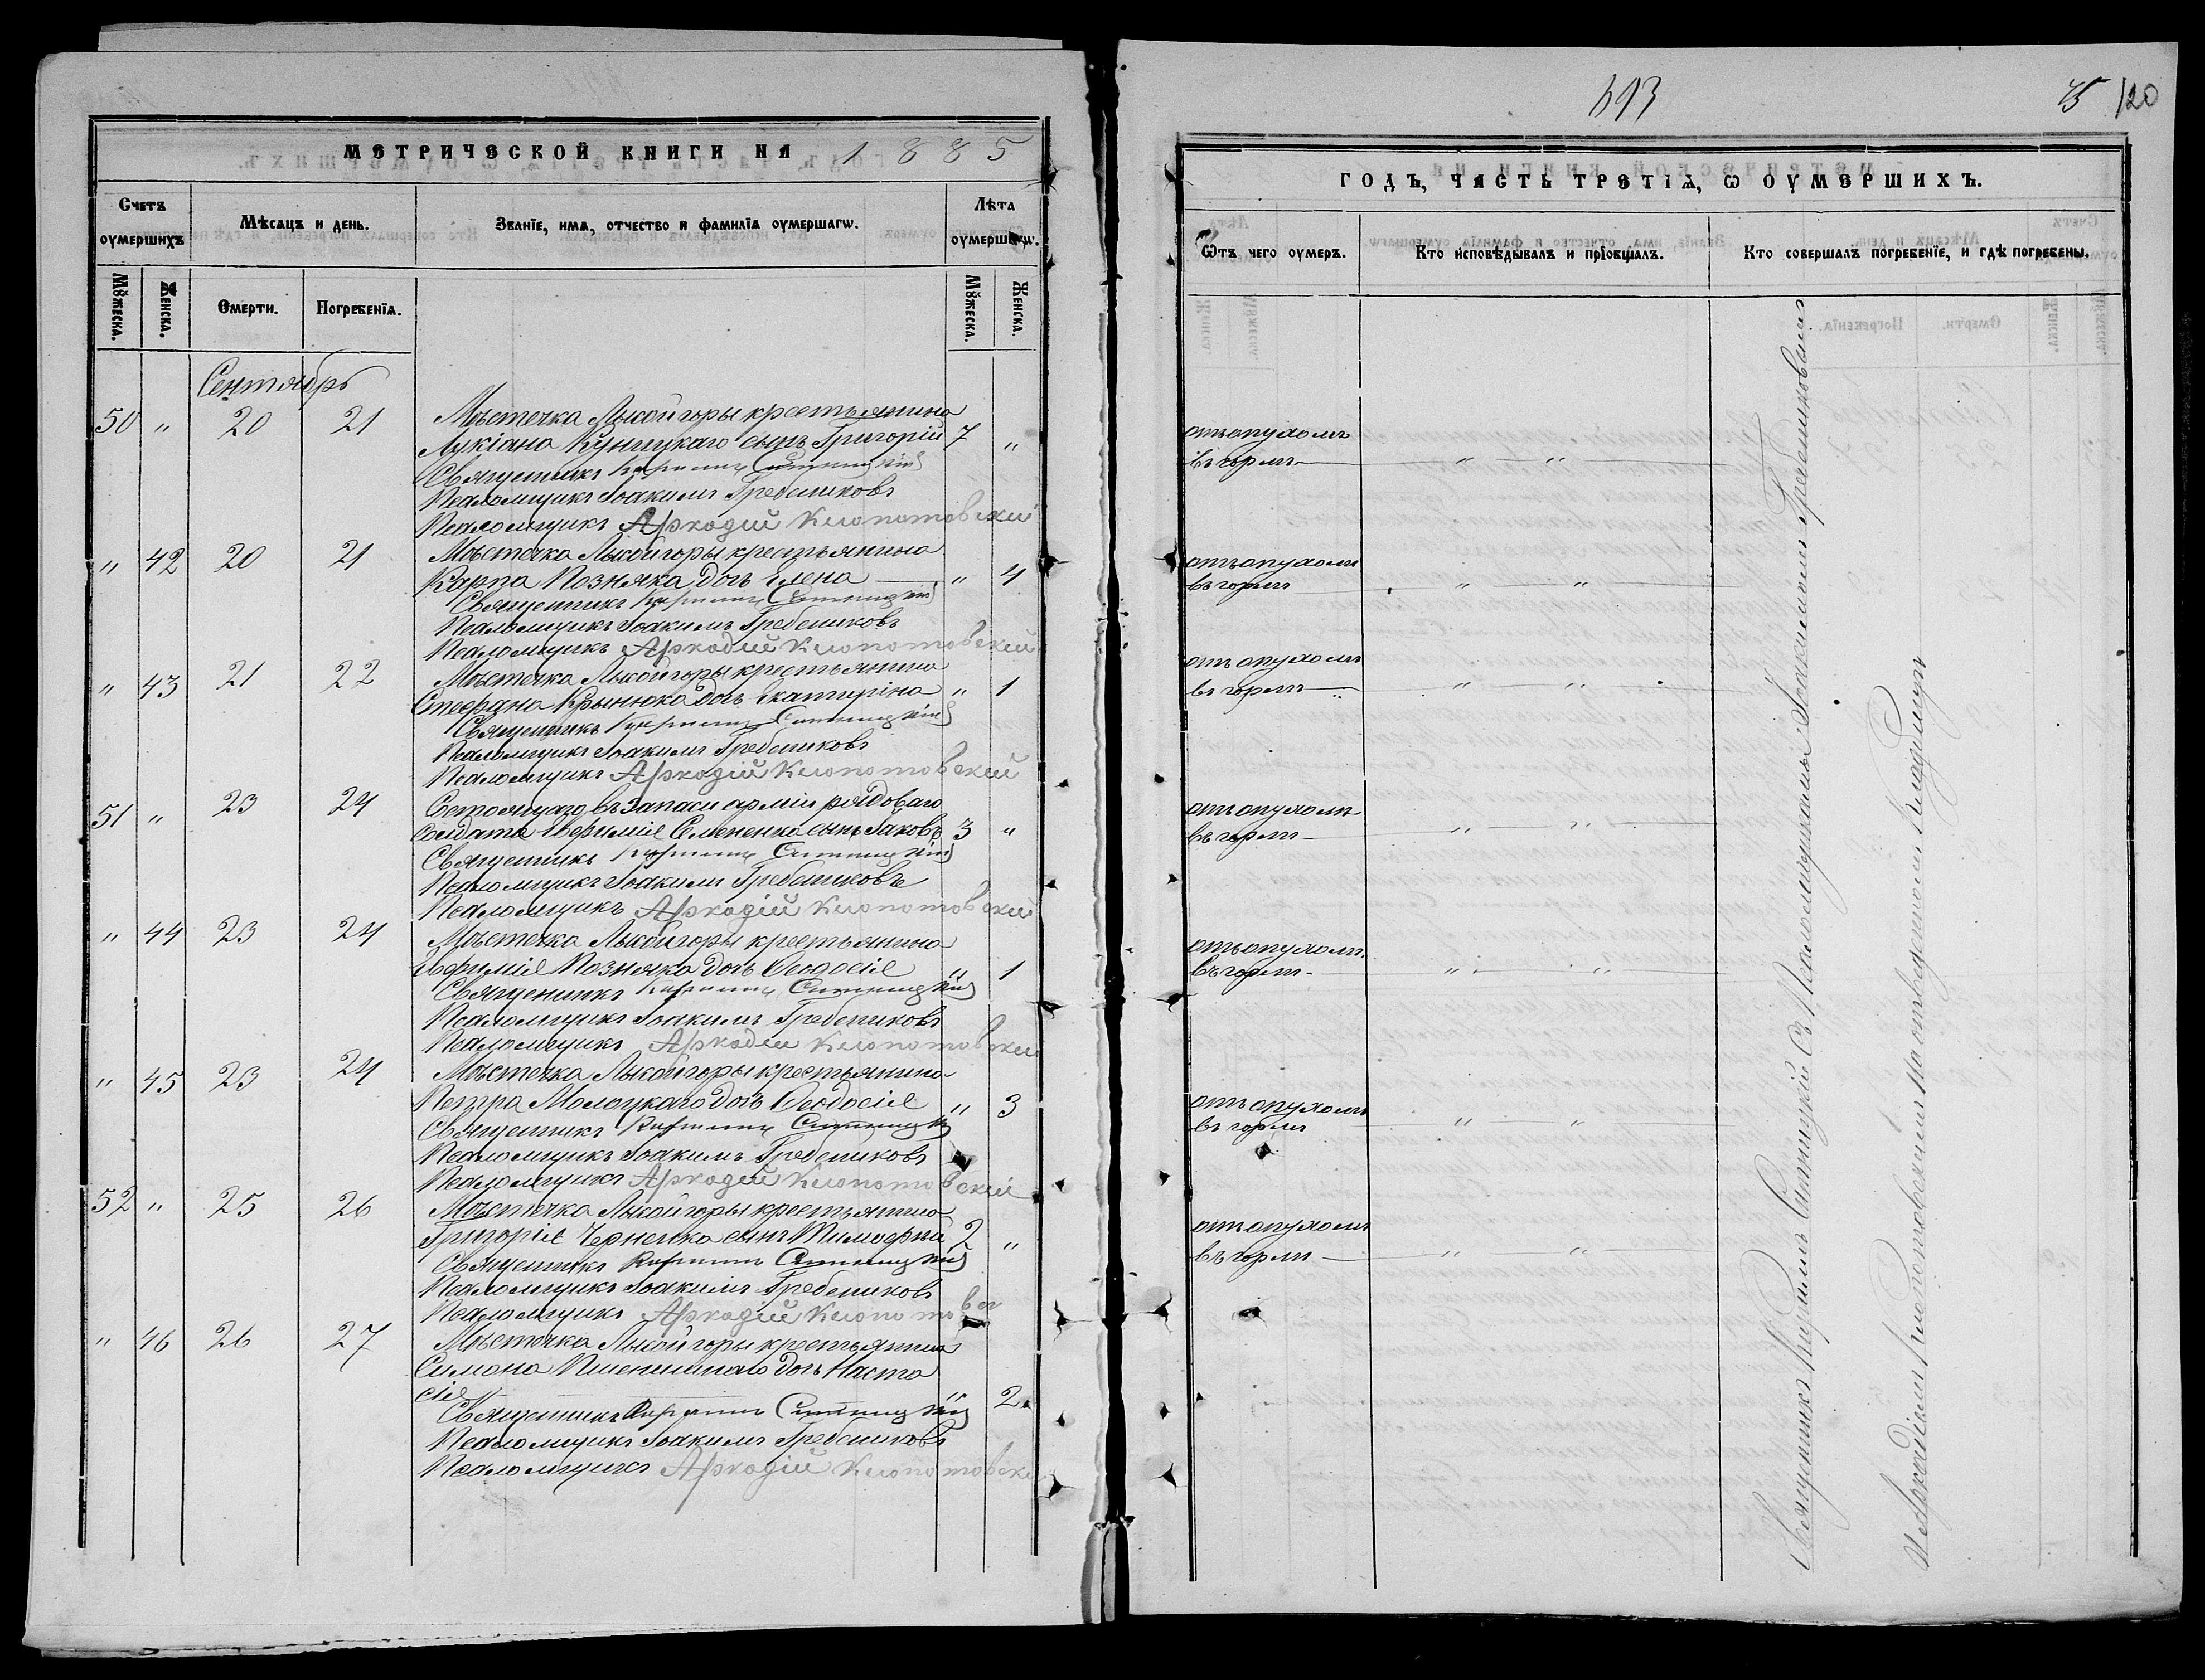 МЕТРИЧЕСКОЙ КНИГИ НА 1885
Счетъ оумершихъ
Мѣсяцъ и день.
Званїе, имѧ, отчество и фамилїа оумершагѡ.
Лѣта оумершагѡ.
Мꙋжеска.
Женска.
Смерти.
Погребенїѧ.
Мꙋжеска.
Женска.
Сентябрь
50 " 20 21 Мѣстечка Лысойгоры крестьянина
Лукіана Куницкаго сынъ Григорій 7 "
Священникъ Кириллъ Ситницкій
Псаломщикъ Іоакимъ Гребениковъ
Псаломщикъ Аркадій Клопотовскій
" 42 20 21 Мѣстечка Лысойгоры крестьянина
Карпа Позняка дочь Елена " 4
Священникъ Кириллъ Ситницкій
Псаломщикъ Іоакимъ Гребениковъ
Псаломщикъ Аркадій Клопотовскій
" 43 21 22 Мѣстечка Лысойгоры крестьянина
Стефана Крынюка дочь Екатирина " 1
Священникъ Кириллъ Ситницкій
Псаломщикъ Іоакимъ Гребениковъ
Псаломщикъ Аркадій Клопотовскій
51 " 23 24 Состоящаго въ запаси арміи рядоваго
солдата Евфимія Семененка сынъ Іаковъ 3 "
Священникъ Кириллъ Ситницкій
Псаломщикъ Іоакимъ Гребениковъ
Псаломщикъ Аркадій Клопотовскій
" 44 23 24 Мѣстечка Лысойгоры крестьянина
Евфимія Позняка дочь Ѳеодосія " 1
Священникъ Кириллъ Ситницкій
Псаломщикъ Іоакимъ Гребениковъ
Псаломщикъ Аркадій Клопотовскій
" 45 23 24 Мѣстечка Лысойгоры крестьянина
Петра Молоцкаго дочь Ѳеодосія " 3
Священникъ Кириллъ Ситницкій
Псаломщикъ Іоакимъ Гребениковъ
Псаломщикъ Аркадій Клопотовскій
52 " 25 26 Мѣстечка Лысойгоры крестьянина
Григорія Черненка сынъ Тимофей 2 "
Священникъ Кириллъ Ситницкій
Псаломщикъ Іоакимъ Гребениковъ
Псаломщикъ Аркадій Клопотовск
" 46 26 27 Мѣстечка Лысойгоры крестьянина
Симона Пшеничнаго дочь Наста
сія " 2
Священникъ Кириллъ Ситницкій
Псаломщикъ Іоакимъ Гребениковъ
Псаломщикъ Аркадій Клопотовск
693
120
ГОДЪ, ЧАСТЬ ТРЕТІѦ, Ѡ ОУМЕРШИХЪ.
Ѿтъ чего оумеръ.
Кто исповѣдывалъ и прїобщалъ.
Кто совершалъ погребенїе, и гдѣ погребены.
отъ опухоли
въ горли " "
отъ опухоли
въ горли " "
отъ опухоли
въ горли " "
отъ опухоли
въ горли " "
отъ опухоли
въ горли " "
отъ опухоли
въ горли " "
отъ опухоли
въ горли " "
Священникъ Кириллъ Ситницкій съ Псаломщиками Іоакимомъ Гребениковымъ
и Аркадіемъ Клопотовскимъ на отведенномъ кладбищѣ